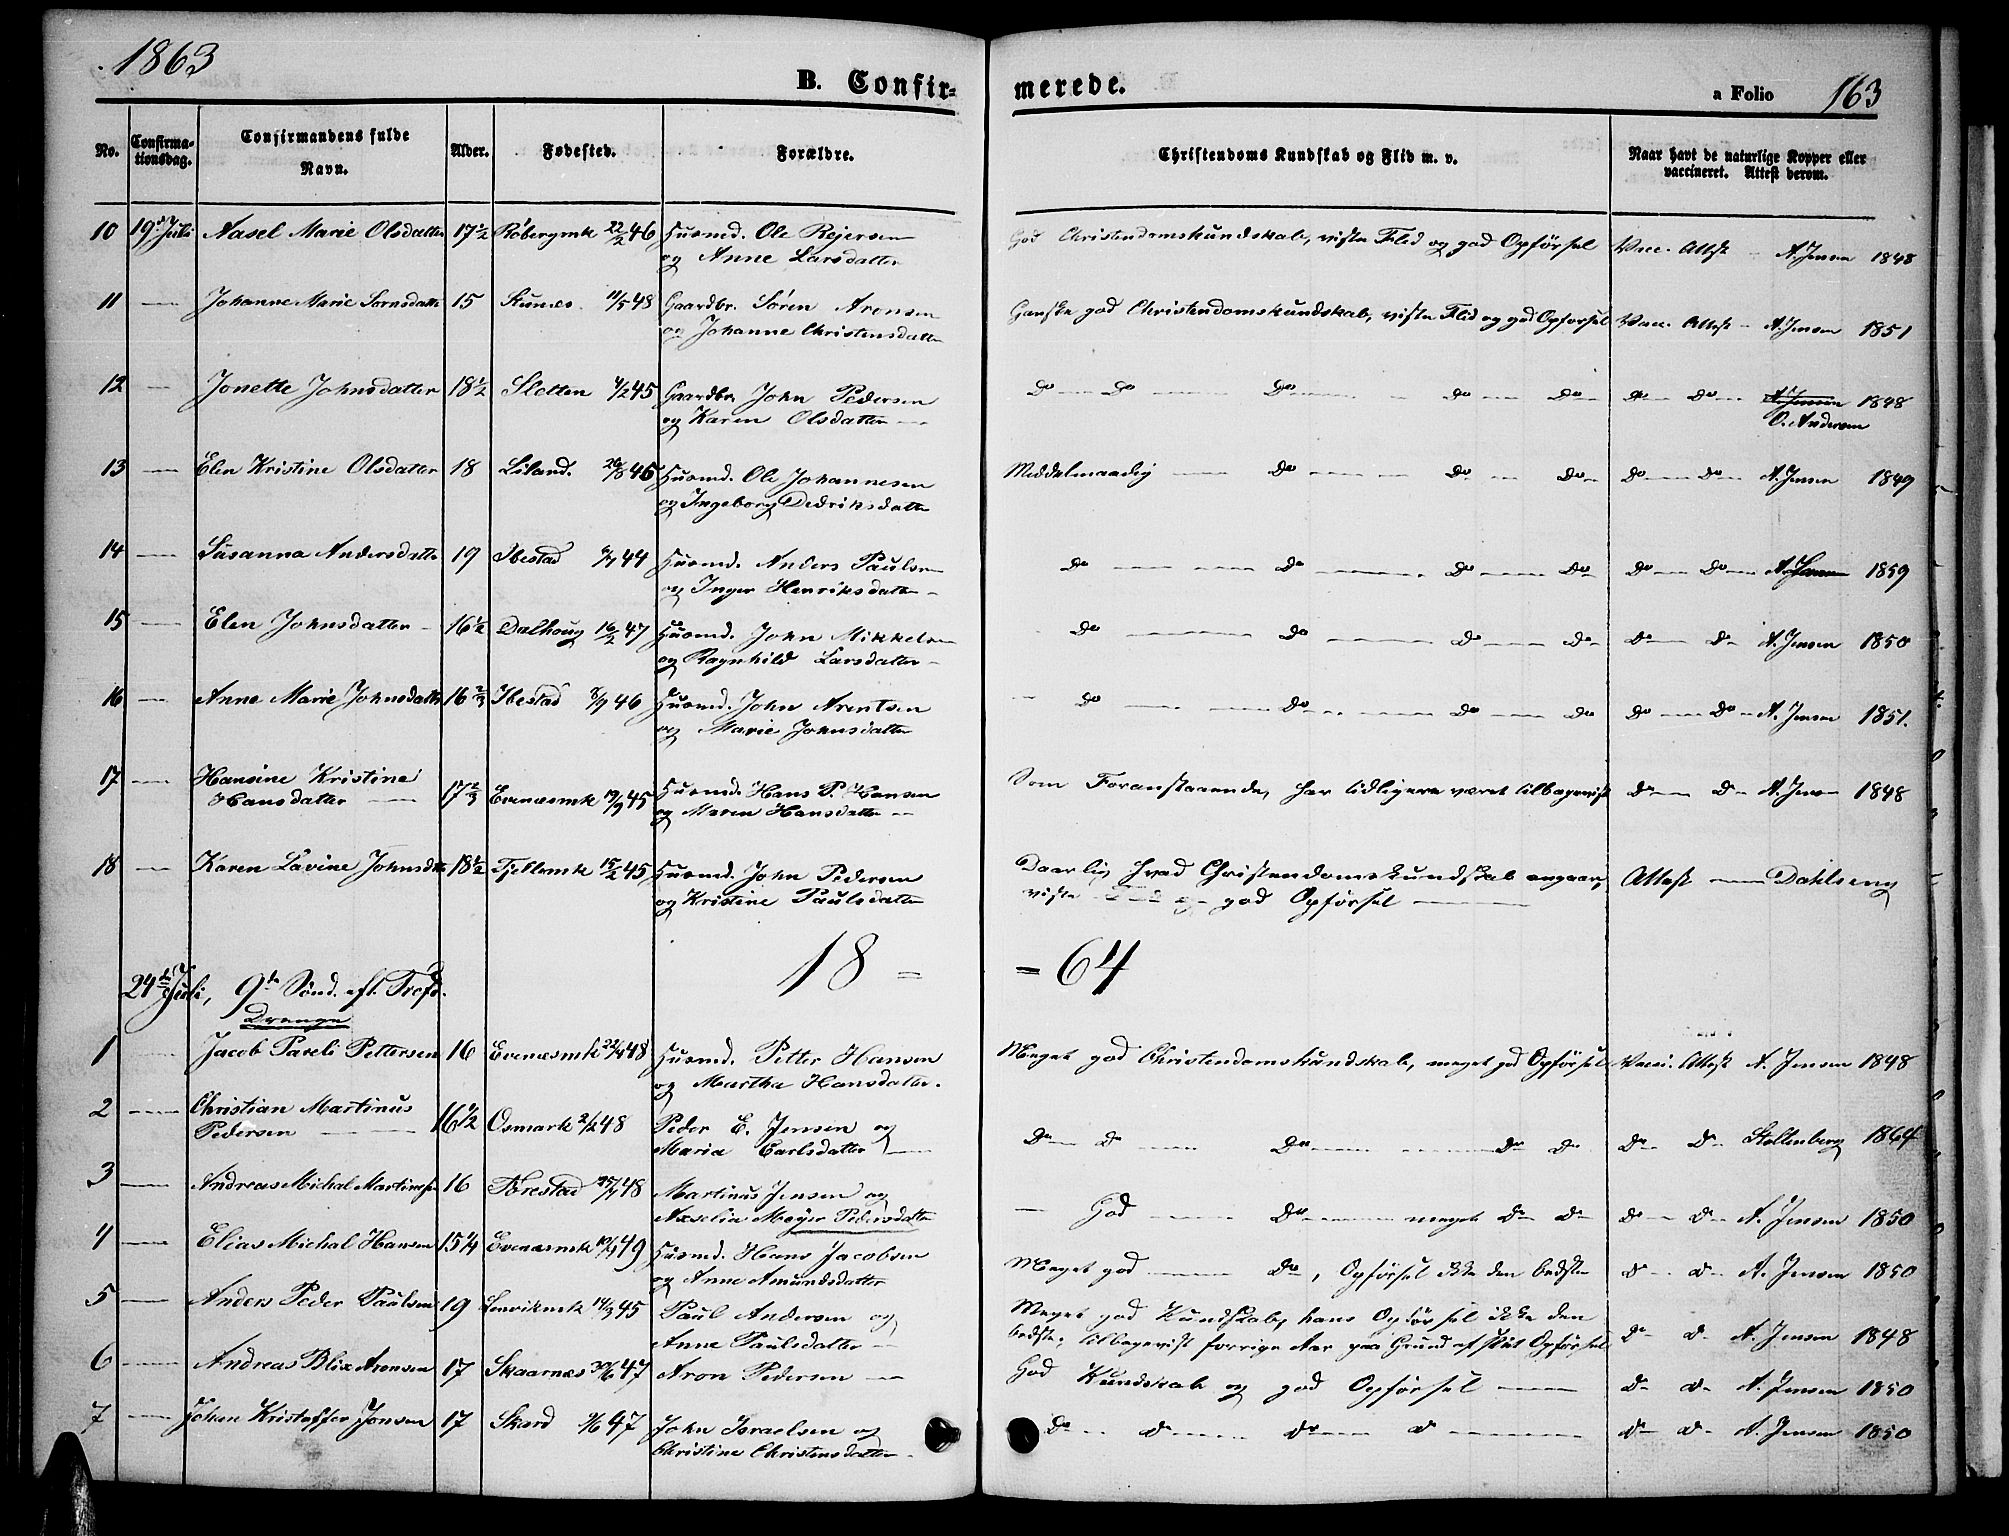 1863
B. Confir-
merede.
a Folio 163
No.
Confirma-
tionsdag.
Confirmandens fulde
Navn.
Alder.
Fødested.
Forældre.
Christendoms Kundskab og Flid m. v.
Naar havt de naturlige Kopper eller
vaccineret. Attest derom.
10 19de Juli Aasel Marie Olsdatter 17½ Røbergmk 22/2 46 Huusmd. Ole Rejersen God Christendomskundskab, viste Flid og god Opførsel Vacc. Attest - A. Jensen 1848
og Anne Larsdatter
11 — Johanne Marie Sørnsdatter 15 11/5 48 Gaardbr. Søren Aronsen Ganske god Christendomskundskab, viste Flid og god Opførsel Vacc. Attest - A. Jensen 1851
og Johanne Christensdatter
12 — Jonette Johnsdatter 18½ Sletten 4/2 45 Gaardbr. John Pedersen Do — Do — Do — Do — Do Do — Do — A. Jensen 1848
og Karen Olsdatter — O. Andersen
13 — Elen Kristine Olsdatter 18 Liland. Huusmd. Ole Johannesen Middelmaadig — Do — Do — Do Do — Do — A. Jensen 1849
og Ingeborg Dedriksdatter
14 — Susanna Andersdatter 19 Ibestad 44 Huusmd. Anders Paulsen Do — Do — Do — Do Do — Do — A. Jensen 1859
og Inger Henriksdatter —
15 — Elen Johnsdatter — 16½ Dalhoug 16/2 47 Huusmd. John Mikkelsen Do — Do — Do — Do Do — Do A. Jensen 1850
og Ragnhild Larsdatter —
16 — Anne Marie Johnsdatter 16⅔ Ibestad 8/9 46 Huusmd. John Arentsen — Do — Do — Do — Do Do — Do — A. Jensen 1851.
og Marie Johnsdatter
17 — Hansine Kristine
Hansdatter — 17⅔ Evenæsmk 19/9 45 Huusmd. Hans P. Hansen Som Foranstaaende, har tidligere været tilbagevist Do — Do A. Jensen 1848
og Maren Hansdatter —
18 — Karen Lavine Johnsdtr 18½ Fjeldmk 15/2 45 Huusmd. John Pedersen Daarlig hvad Christendomskundskab angaar, Attest — Dahlseng
og Kristine Paulsdatter viste Flid og god Opførsel —
18 =
= 64
24de Juli, 9de Sønd. eft. Trefo.
Drenge
1 — Jacob Pareli Pettersen 16 Evenæsmk 48 Huusmd. Petter Hansen Meget god Christendomskundskab, meget god Opførsel Vacci. Attest A. Jensen 1848
og Martha Hansdatter.
2 — Christian Martinus
Pedersen — 16½ Osmark 2/2 48 Peder E. Jensen og Do — Do — Do — Do Do Do — Do — Stoltenberg 1864
Maria Carlsdatter —
3 — Andreas Michal Martinsen 16 48 Martinus Jensen og — God — Do — meget Do — Do — Do — Do — A. Jensen 1850
Axselia Meyer Pedersdatter
4 — Elias Michal Hansen 15¼ Evenæsmk 49 Huusmd. Hans Jacobsen Meget god — Do, Opførsel ikke den bedste Do — Do — A. Jensen 1850
og Anne Amundsdatter
5 — Anders Peder Paulsen 19 Lenviksmk 14/3 45 Paul Andersen og Meget god Kundskab, hans Opførsel ikke den
Anne Paulsdatter — bedste, tilbagevist forrige Aar paa Grund af slet Opførsel Do — Do — A. Jensen 1848
6 — Andreas Blix Aronsen 17 Skaarnæs 47 Aron Pedersen — God Kundskab og god Opførsel — Do — Do — A. Jensen 1850
7 — Johan Kristoffer Jonsen 17 Skard 47 John Israelsen og Do — Do — Do — Do — Do — Do — A. Jensen 1850
Christine Christensdatter —